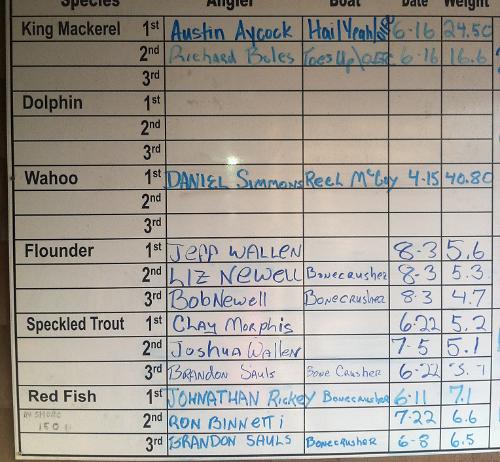 Species Angler Boat Date Weight
King Mackerel 1st Austin Aycock HailYeah/ 6-16 24.50
2nd Richard Boles ToesUp\ 6-16 16.6
3rd
Dolphin 1st
2nd
3rd
Wahoo 1st DANIEL Simmons Reel McCoy 4-15 40.80
2nd
3rd
Flounder 1st JEFF WALLEN 8-3 5.6
2nd LIZ NEWELL Bonecrusher 8-3 5.3
3rd Bob Newell Bonecrusher 8-3 4.7
Speckled Trout 1st Clay Morphis 6-22 5.2
2nd Joshua Wallen 7-5 5.1
3rd BRANDON Sauls Bone Crusher 6-22
Red Fish 1st JOHNATHAN Rickey Bonecrusher 6-11 7.1
2nd RON BINNETTi 7-22 6.6
3rd BRANDON SAULS Bonecrusher 6-8 6.5